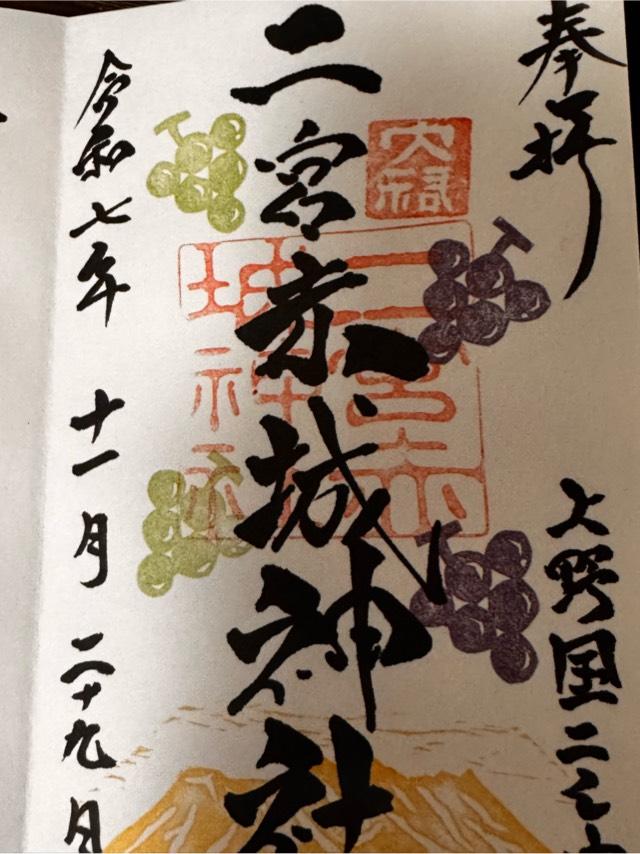 奉拝
上野国二之
二宮赤城神社
二宮赤
城神社
令和七年 十一月 二十九日